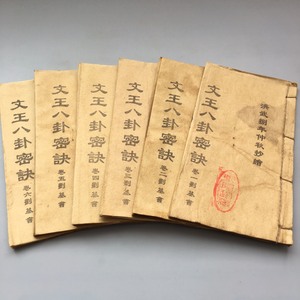 年仲秋
文王八卦密訣
卷一劉基書
文王八卦密訣
卷二劉基書
文王八卦密訣
卷三劉基書
文王八卦密訣
卷四劉基書
文王八卦密訣
卷五劉基書
文王八卦密訣
卷六劉基書